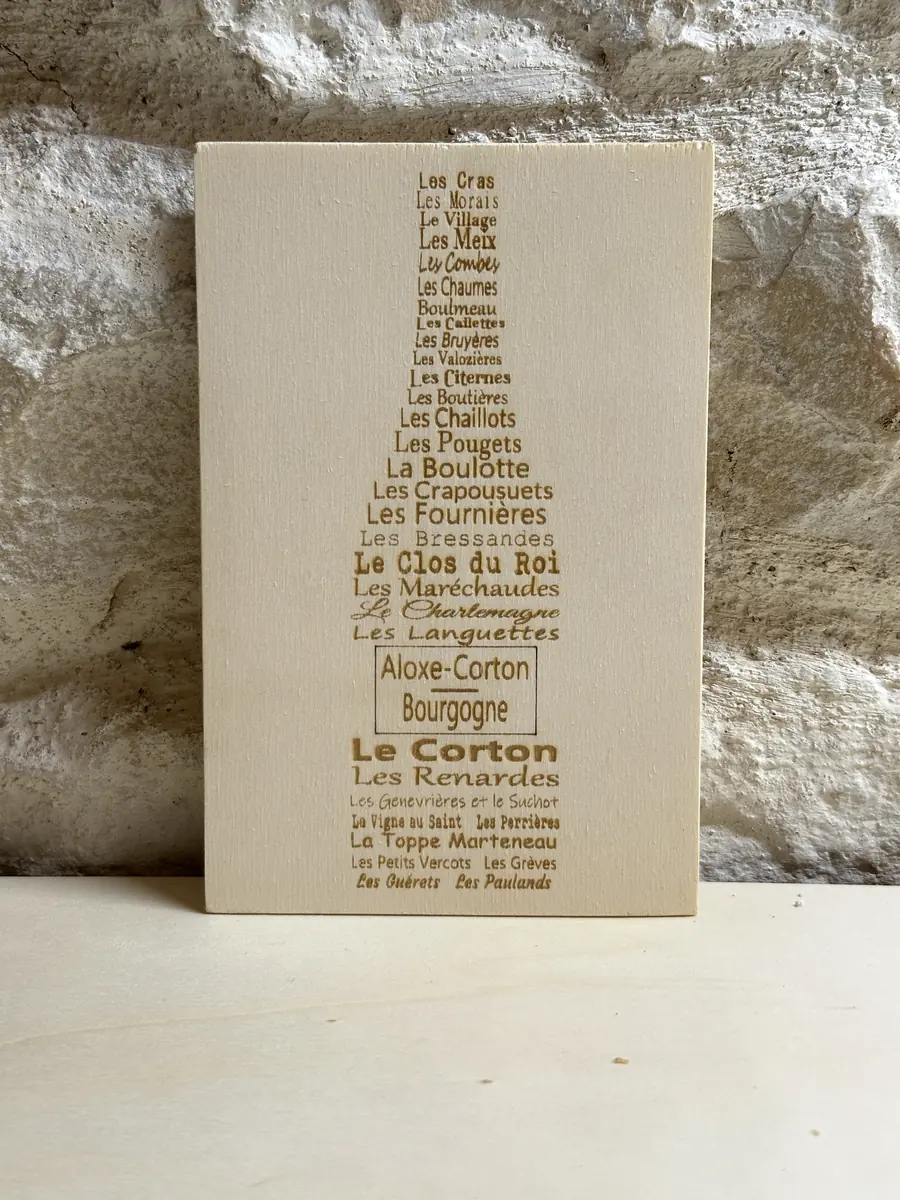 Les Cras
Les Morais
Le Village
Les Meix
Les Combes
Les Chaumes
Boulmeau
Les Caillettes
Les Bruyères
Les Valozières
Les Citernes
Les Boutières
Les Chaillots
Les Pougets
La Boulotte
Les Crapousuets
Les Fournières
Les Bressandes
Le Clos du Roi
Les Maréchaudes
Le Charlemagne
Les Languettes
Aloxe-Corton
Bourgogne
Le Corton
Les Renardes
Les Genevrières et le Suchot
La Vigne au Saint Les Perrières
La Toppe Marteneau
Les Petits Vercots Les Grèves
Les Guérets Les Paulands